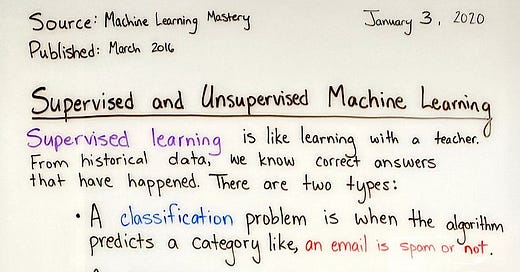 Source: Machine Learning Mastery
January 3, 2020
Published: March 2016
Supervised and Unsupervised Machine Learning
Supervised learning is like learning with a teacher.
From historical data, we know correct answers
that have happened. There are two types:
• A classification problem is when the algorithm
predicts a category like, an email is spam or not.